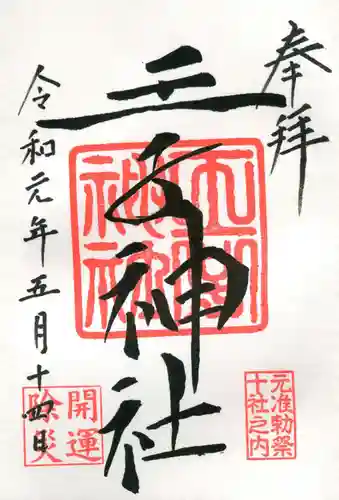 奉拝
王子神社
令和元年五月十四日
元准勅祭
十社之内
開運
除災